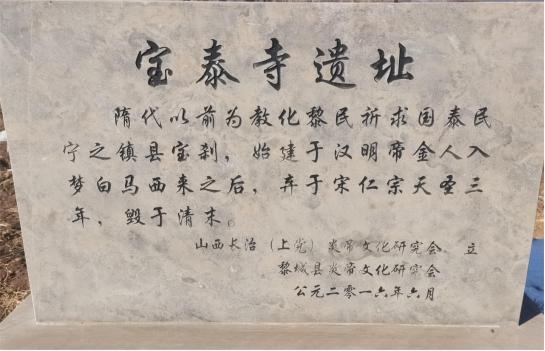 宝泰寺遗址
隋代以前为教化黎民祈求国泰民
宁之镇县宝刹，始建于汉明帝金人入
梦白马西来之后，弃于宋仁宗天圣三
年，毁于清末。
山西长治（上党）炎帝文化研究会 立
黎城县炎帝文化研究会
公元二零一六年六月